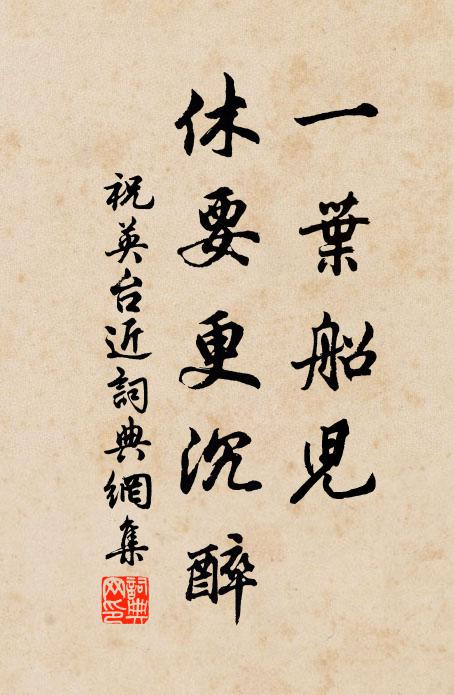 一葉船兒
休要更沉醉
祝英台近詞典網集
詞典
网印